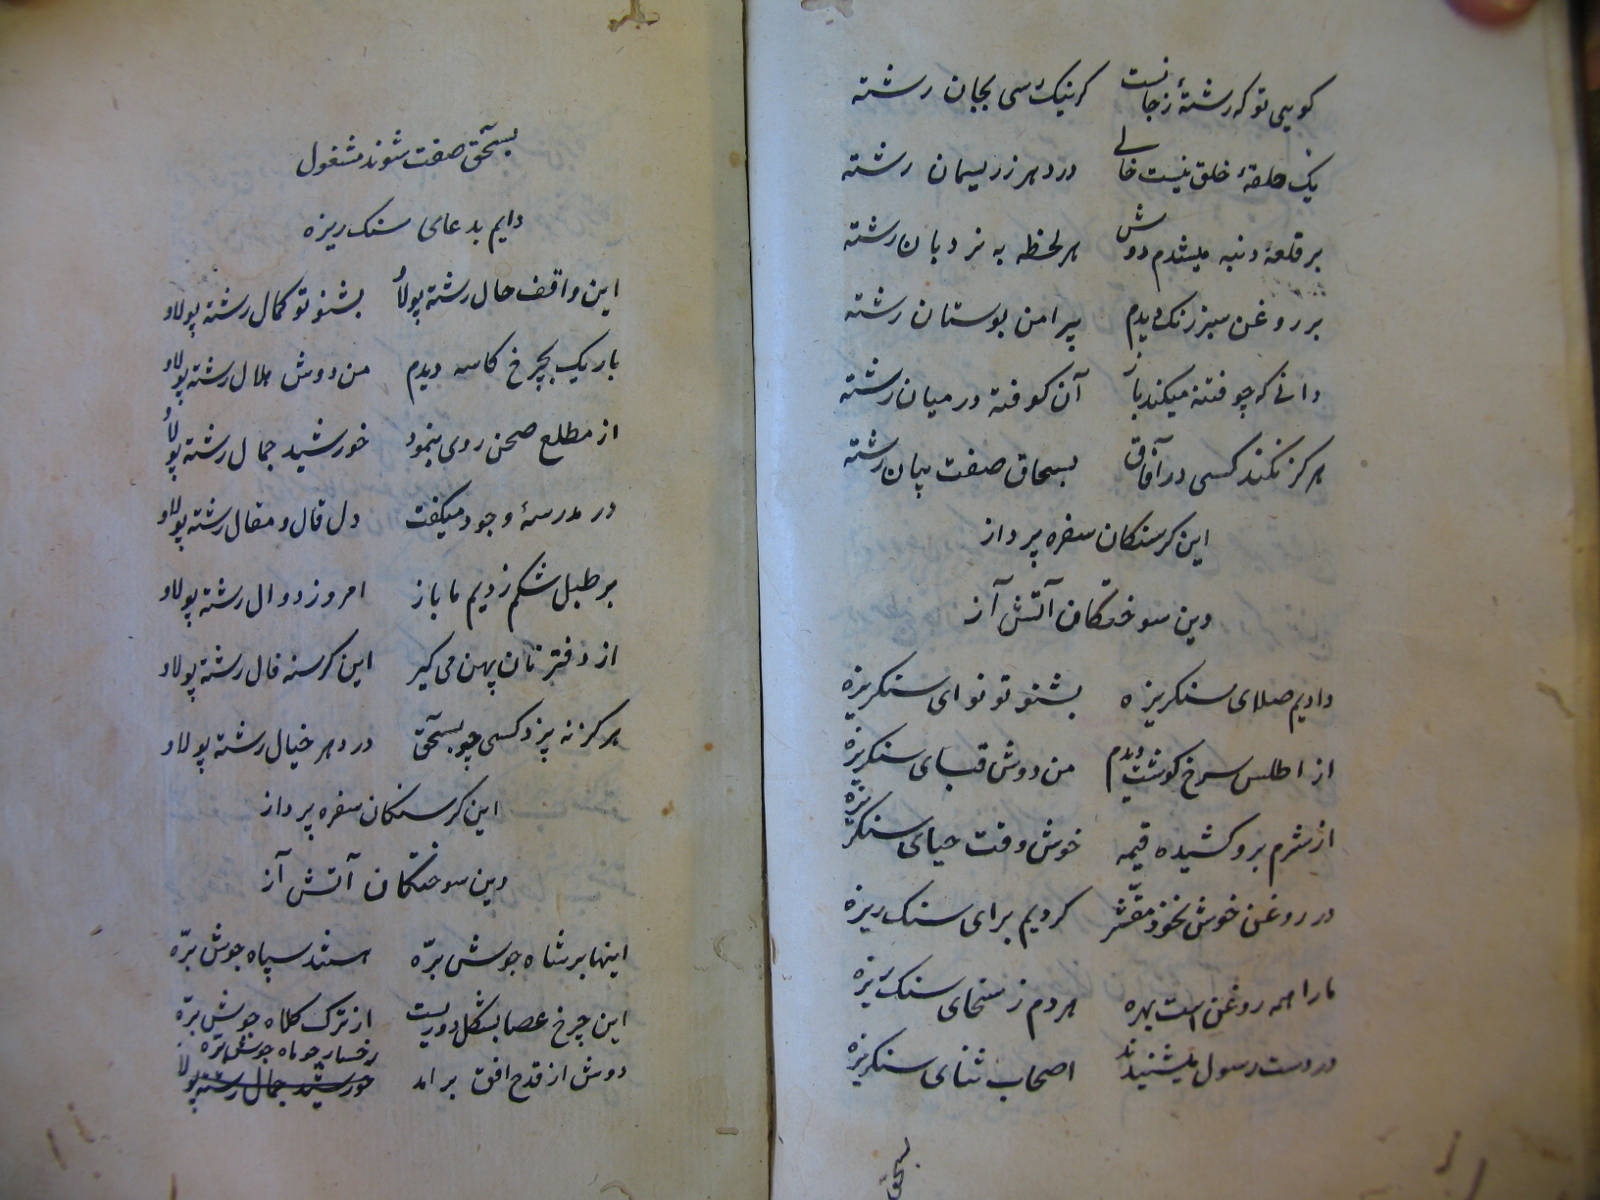 کویی تو که رشتهٔ ز جانست کرنیک رسی بجان رشته
یک حلقهٔ خلق نیست خالی در دهر ز ریسمان رشته
بر قلعهٔ دنبه میشدم دوش هر لحظه به نردبان رشته
بر روغن سبز رنک دیدم پیرامن بوستان رشته
دانی که چو فتنه میکند باز آن کوفته در میان رشته
هرکز نکند کسی در آفاق بسحاق صفت بیان رشته
این کرسنکان سفره پرداز
وین سوختکان آتش آز
دادیم صلای سنکریزه بشنو تو نوای سنکریزه
از اطلس سرخ کوشت دیدم من دوش قبای سنکریزه
از شرم برو کشیده قیمه خوش وقت حیای سنکریزه
در روغن خوش نخود مقشّر کردیم برای سنک ریزه
ما را همه روغن است بهره هر دم ز سخای سنک ریزه
در دست رسول میشنیدند اصحاب ثنای سنکریزه
بسحق
بسحٓق صفت شوند مشغول
دایم بدعای سنک ریزه
این واقف حال رشته پولاو بشنو تو کمال رشته پولاو
باریک بچرخ کاسه دیدم من دوش هلال رشته پولاو
از مطلع صحن روی بنمود خورشید جمال رشته پولاو
در مدرسهٔ وجود میکفت دل قال و مقال رشته پولاو
بر طبل شکم زدیم ما باز امروز دوال رشته پولاو
از دفتر نان پهن می کیر این کرسنه فال رشته پولاو
هرکز نه پزد کسی چو بسحٓق در دهر خیال رشته پولاو
این کرسنکان سفره پرداز
وین سوختکان آتش آز
اینها بر شاه جوش برّه هستند سپاه جوش برّه
این چرخ عصا بشکل دوریست از ترک کلاه جوش برّه
دوش از قدح افق برامد رخسار چو ماه جوش برّه
خورشید جمال رشته پولاو